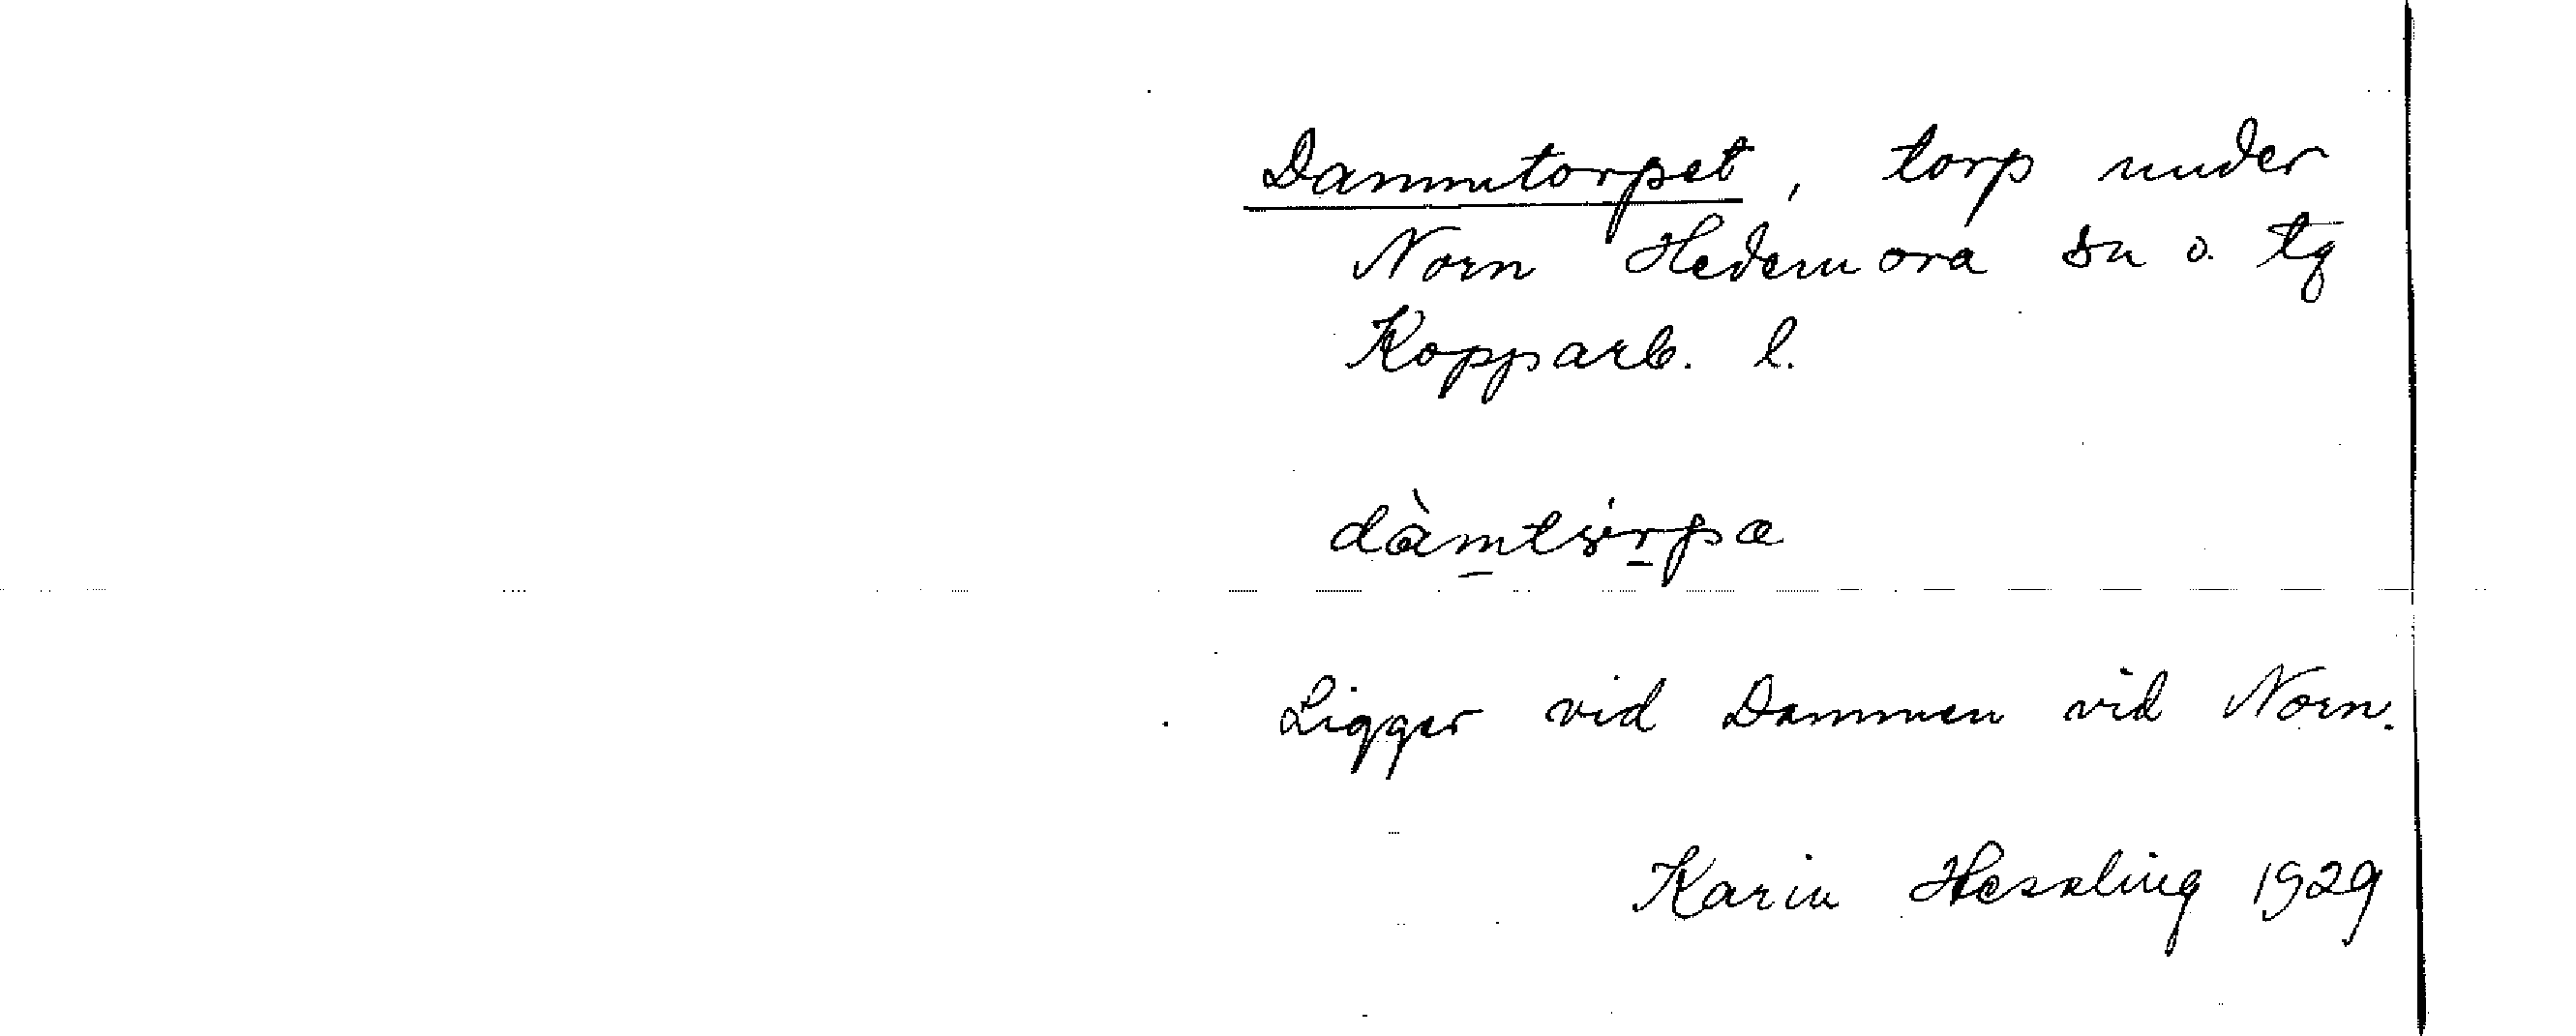 Dammtorpet, torp under
Norn Hedemora sn o. tg
Kopparb. l.
Ligger vid Dammen vid Norn.
Karin Hessling 1929